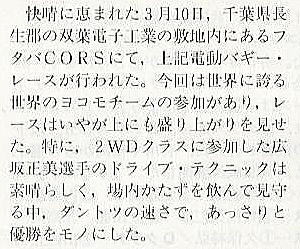 快晴に恵まれた３月10日，千葉県長
生郡の双葉電子工業の敷地内にあるフ
タバＣＯＲＳにて，上記電動バギー・
レースが行われた。今回は世界に誇る
世界のヨコモチームの参加があり，レ
ースはいやが上にも盛り上がりを見せ
た。特に，２ＷＤクラスに参加した広
坂正美選手のドライブ・テクニックは
素晴らしく，場内かたずを飲んで見守
る中，ダントツの速さで，あっさりと
優勝をモノにした。